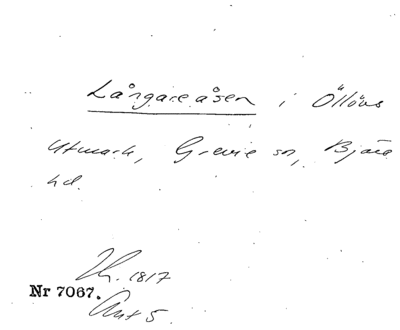 Långareåsen i Öllövs
Utmark, Grevie sn, Bjäre
hd.
Th. 1817
Nr 7067.
Ant 5.